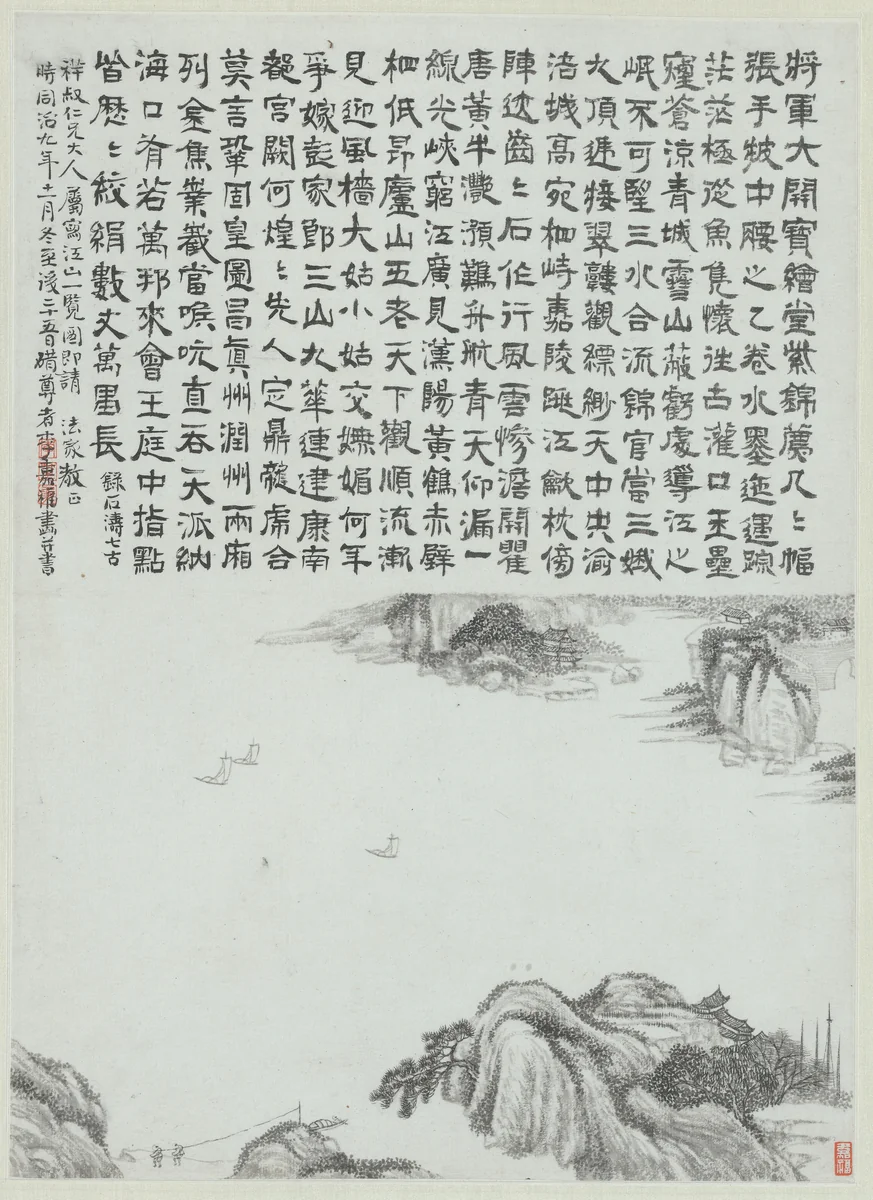 將軍大開寶繪堂紫錦薦几〻幅
張手披中腰之乙卷水墨迤邐踪
茫茫極從魚鳧懷往古灌口玉壘
蒼涼青城雪山蔽虧處導江之
岷不可望三水合流錦官當三峨
九頂遞接翠鬟觀縹緲天中央渝
涪城高宛相峙嘉陵跳江枕傍
陣迹齒〻石作行風雲慘澹開瞿
唐黃牛灩澦難舟航青天仰漏一
線光峽窮江廣見漢陽黃鶴赤壁
相低昂廬山五老天下觀順流漸
見迎風檣大姑小姑交嫵媚何年
爭嫁彭家郎三山九華連建康南
都宮闕何煌〻先人定鼎龍虎合
莫言鞏固皇圖昌真州潤州兩廂
列金焦業嶻當喉吭直吞天派納
海口有若萬邦來會王庭中指點
皆歷〻絞絹數丈萬里長 錄石濤七古
祥叔仁兄大人屬寫江山一覽圖即請 法家教正
時同治九年十一月冬至後二十五日尊者李嘉福畫並書